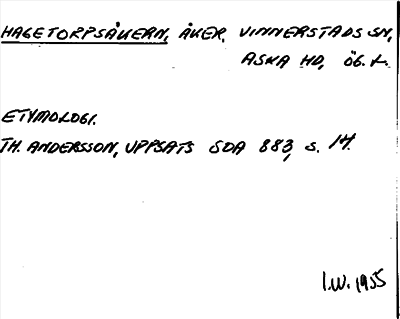 HAGETORPSÅKERN, ÅKER, VINNERSTADS SN,
ASKA HD, ÖG. L.
ETYMOLOGI.
TH. ANDERSSON, UPPSATS SOA 883, S. 14.
I.W. 1955